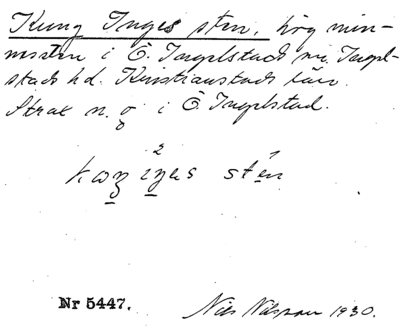 Kung Inges sten, hög min-
nessten i Ö. Ingelstads sn. Ingel-
stads hd. Kristianstads län.
Strax n. g i Ö. Ingelstad.
2 1
kaŋ iŋas stén
Nr 5447.
Nils Nilsson 1930.